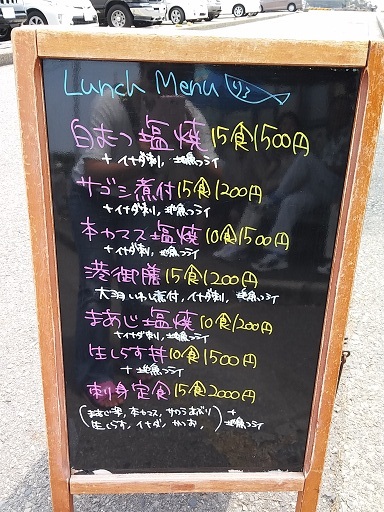 Lunch Menu
白むつ塩焼 15食 1500円
+イナダ刺、地魚フライ
サゴシ煮付 15食 1200円
+イナダ刺、地魚フライ
本カマス塩焼 10食 1500円
+イナダ刺、地魚フライ
港御膳 15食 1200円
大羽いわし煮付、イナダ刺、地魚フライ
まあじ塩焼 10食 1200円
+イナダ刺、地魚フライ
生しらす丼 10食 1500円
+地魚フライ
刺身定食 15食 2000円
(まあじ, 本カマス, サワラあぶり
生しらす, イナダ, かつお,) + 地魚フライ